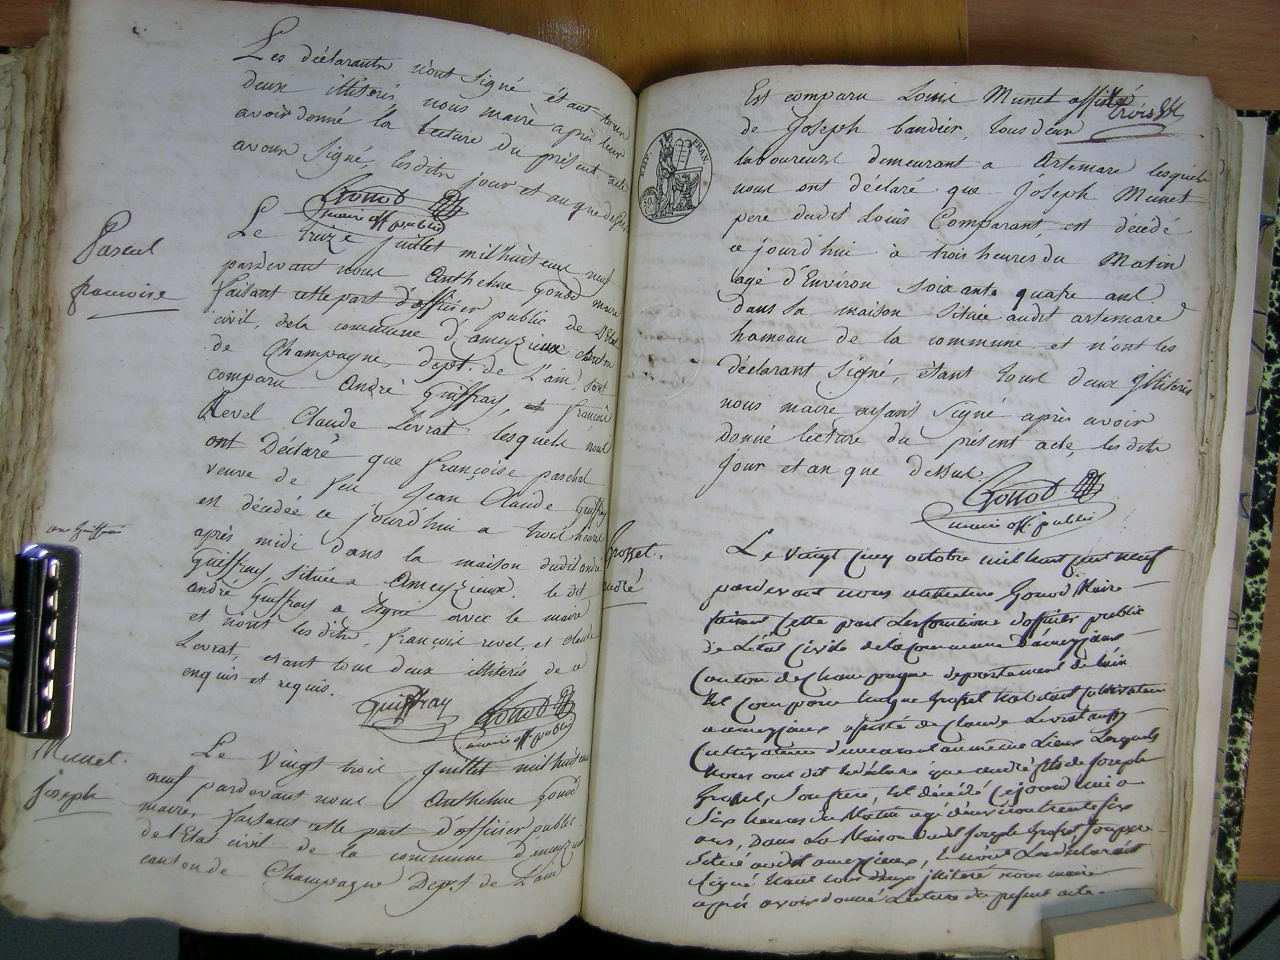 Les déclarants n'ont signé étant tous
deux illiterés nous maire après leur
avoir donné la lecture du présent acte
avons signé, lesdits jour et an que dessus
Gonod
maire off. public
Pascal
françoise
Le treize juillet mil huit cent neuf
pardevant nous Anthelme Gonod maire
faisant cette part d'officier public de l'Etat
civil, de la commune d'ameyzieux canton
de Champagne, dept. de L'ain, sont
comparu André Guiffray, françois
Revel Claude Levrat lesquels nous
ont Déclaré que françoise paschal
veuve de feu Jean Claude Guiffray
est décédée ce jourd'hui a trois heures
après midi dans la maison dudit andré
Guiffray située a Ameyzieux. le dit
andré Guiffray a signé avec le maire
et nonts les dits françois revel, et claude
Levrat, etant tous deux illiterés de ce
enquis et requis.
Guiffray Gonod
maire off public
Munet
Joseph
Le Vingt trois juillet mil huit cent
neuf pardevant nous Anthelme Gonod
maire, faisant cette part d'officier public
de l'Etat civil de la commune d'ameyzieux
canton de Champagne Dept de L'ain
trois
Est comparu Louis Munet affisté
de Joseph bandier, tous deux
laboureurs demeurant a Artemare lesquels
nous ont déclaré que Joseph Munet
pere dudit Louis Comparant est décédé
ce jourd'hui à trois heures du Matin
agé d'Environ soixante quatre ans
dans sa maison située audit artemare
hameau de la commune et n'ont les
déclarant signé, étant tous deux illiterés
nous maire ayant signé après avoir
donné lecture du présent acte, les dits
Jour et an que dessus
Gonod
maire off public
Grosset.
andré
Le vingt cinq octobre mil huit cent neuf
pardevant nous anthelme Gonod Maire
faisant cette part les fonctions d'officier public
de L'état Civile de la Commune d'ameyzieux
Canton de Champagne departement de L'ain
Est Comparu Grosset habitant Cultivateur
a ameyzieux assisté de Claude Levrat aussi
Cultivateur demeurant au même Lieux Lesquels
Nous ont dit et déclaré que andré fils de Joseph
Grosset, son frere, est décédé Ce jourd'hui a
Six heures du Matin agé d'environ trente six
ans, Dans La Maison dudit Joseph Grosset son pere
située audit ameyzieux, et n'ont Les déclarants
Signé Etant tous deux illiteré nous maire
après avoir donné Lecture du present acte